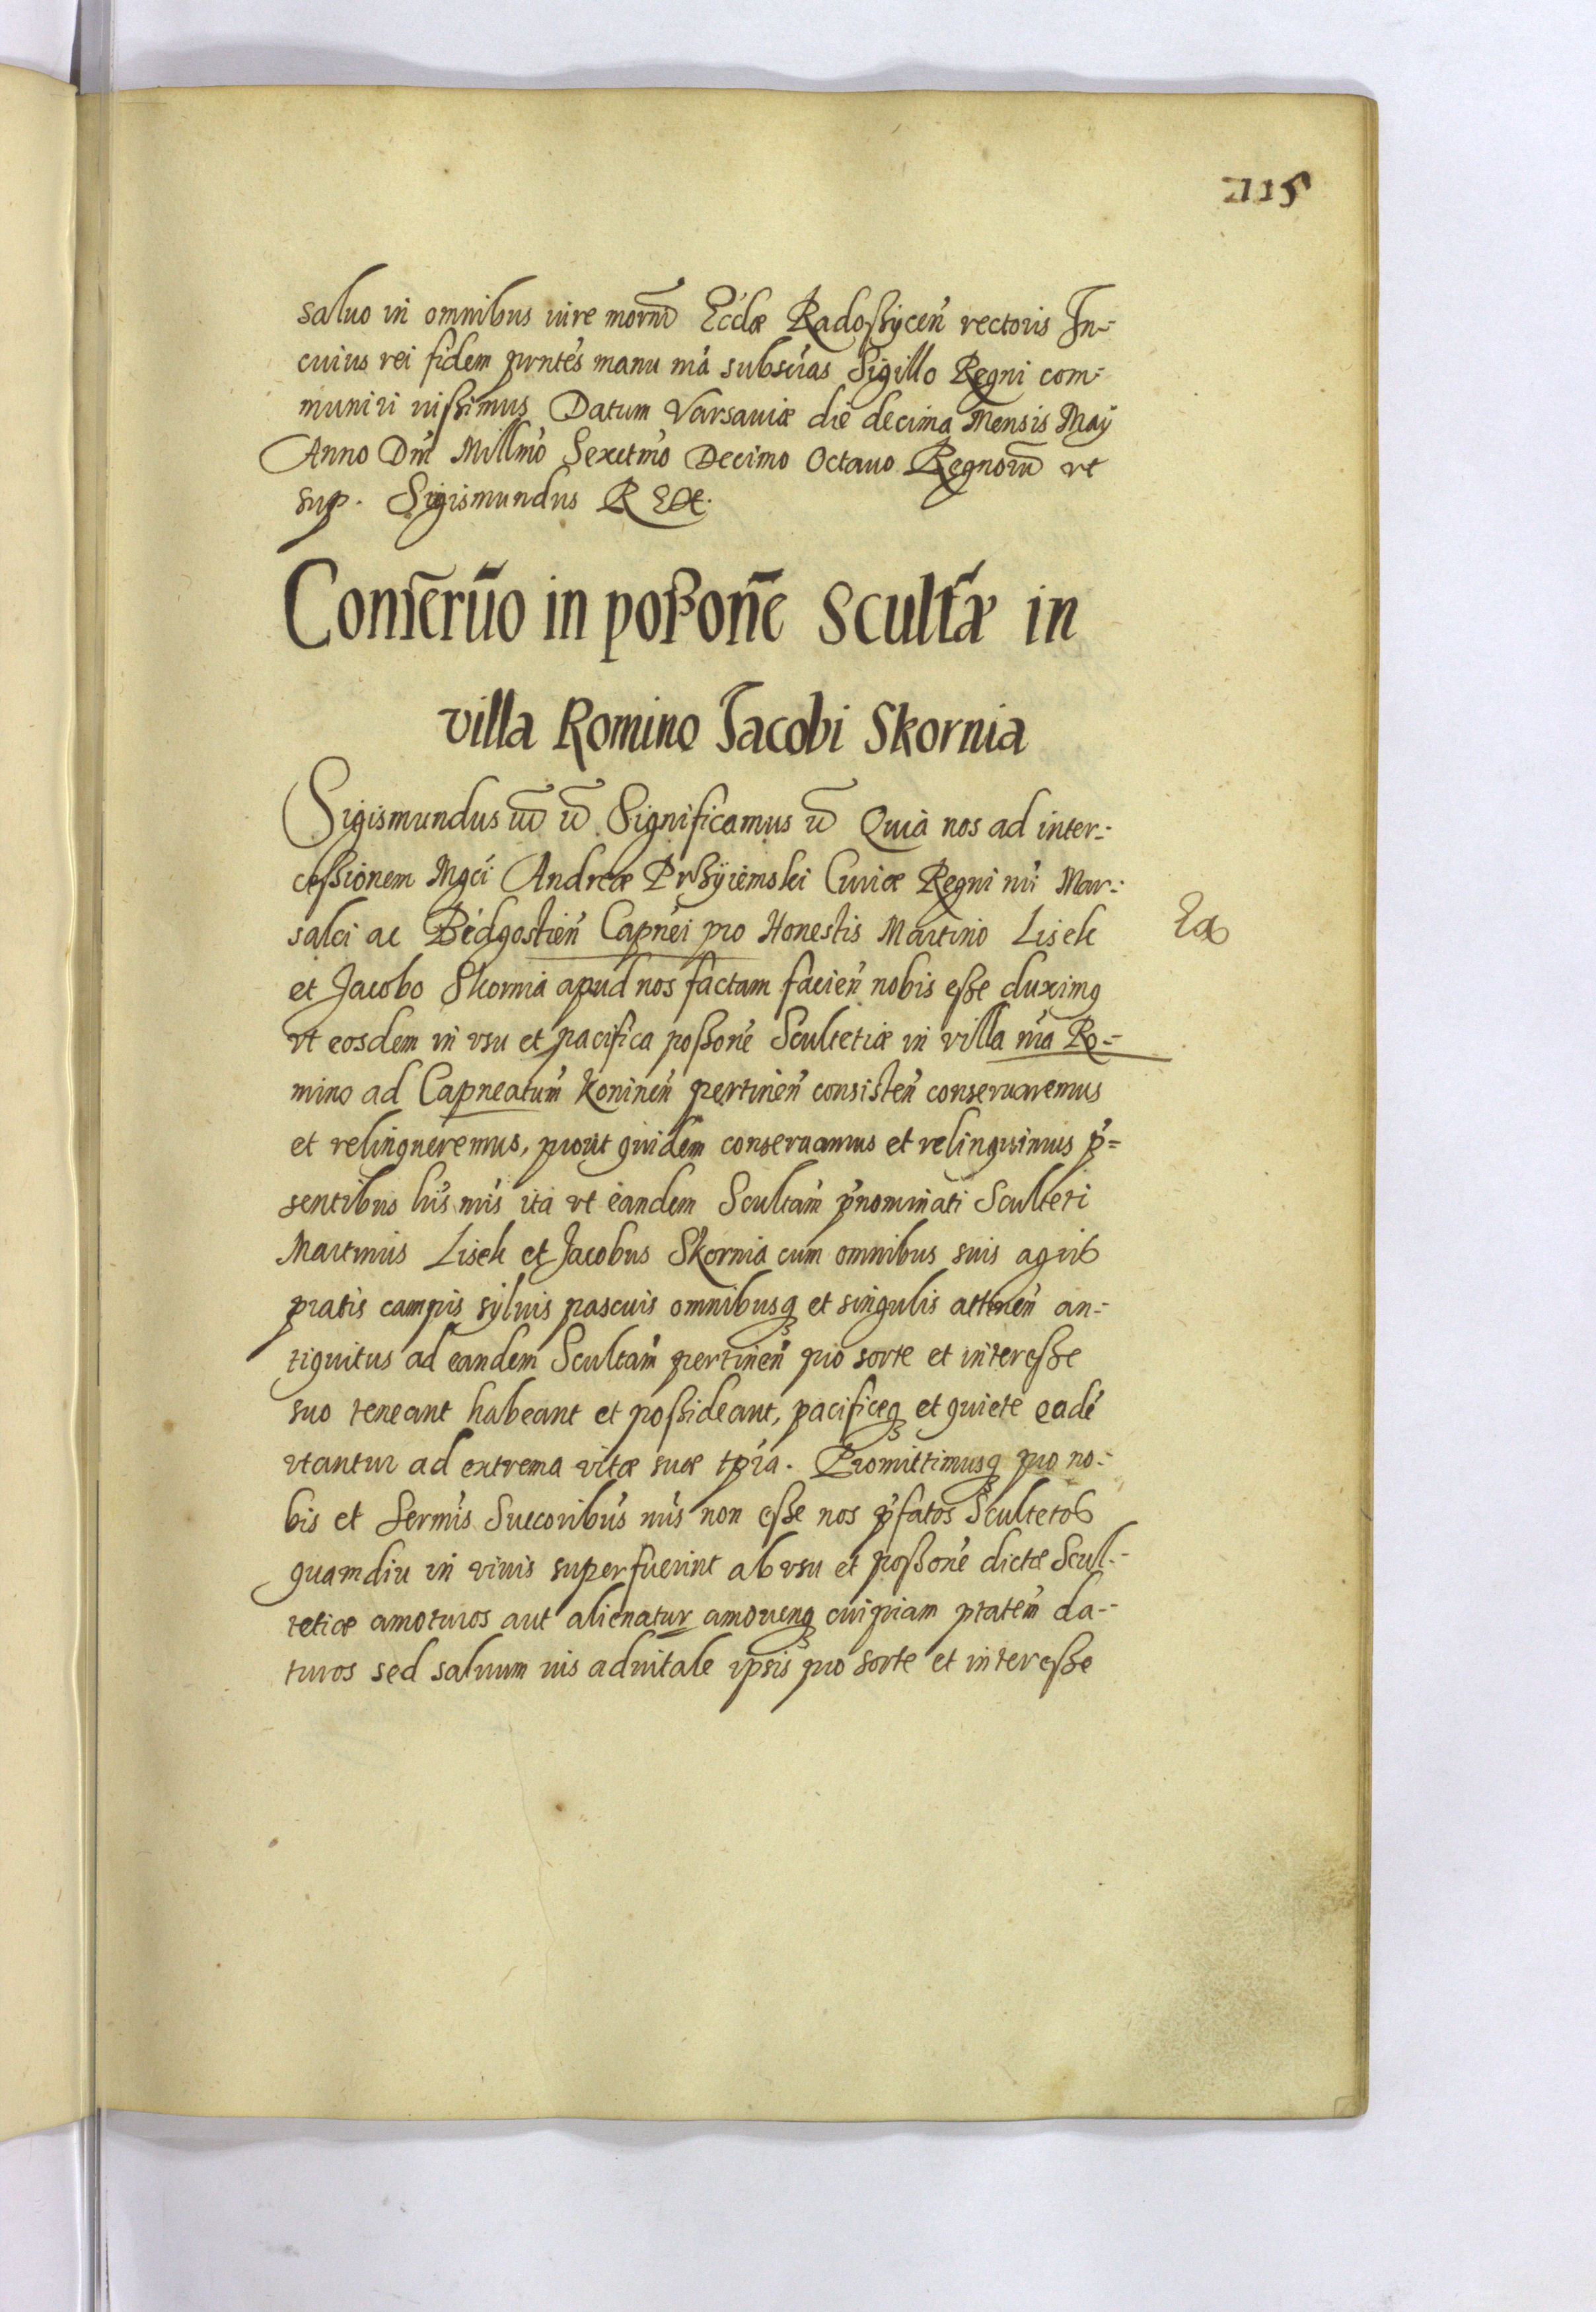 115
saluo in omnibus iure mornu Ecclae Radoszycen rectoris In-
cuius rei fidem prntes manu nra subscras Sigillo Regni com-
muniri iussimus Datum Varsauiae die decima Mensis Maij
Anno Dni Millmo Sexctmo Decimo Octauo Regnoru vt
sup. Sigismundus REX.
Conseruo in possone Scultae in
villa Romino Jacobi Skornia
Sigismundus Significamus Quia nos ad inter-
cessionem Mgci Andreae Przyiemski Curiae Regni nri Mar-
salci ac Bedgostien Capnei pro Honestis Martino Lisek
et Jacobo Skornia apud nos factam facien nobis esse duximq
vt eosdem in vsu et pacifica possone Scultetiae in villa nra Ro-
mino ad Capneatum Koninen pertinen consisten conseruaremus
et relinqueremus, prout quidem conseruamus et relinquimus p-
sentibus his nris ita vt eandem Scultam pnominati Sculteti
Martinus Lisek et Jacobus Skornia cum omnibus suis agris
pratis campis syluis pascuis omnibusq et singulis attinen an-
tiquitus ad eandem Scultam pertinen pro sorte et interesse
suo teneant habeant et possideant, pacificeq et quiete eade
vtantur ad extrema vitae suae tpra. Promittimusq pro no-
bis et Sermis Succoribus nris non esse nos pfatos Scultetos
quamdiu in viuis superfuerint ab vsu et possone dictae Scul-
tetiae amoturos aut alienatur amouenq cuipiam ptatem da-
turos sed saluum ius aduitale ipsis pro sorte et interesse